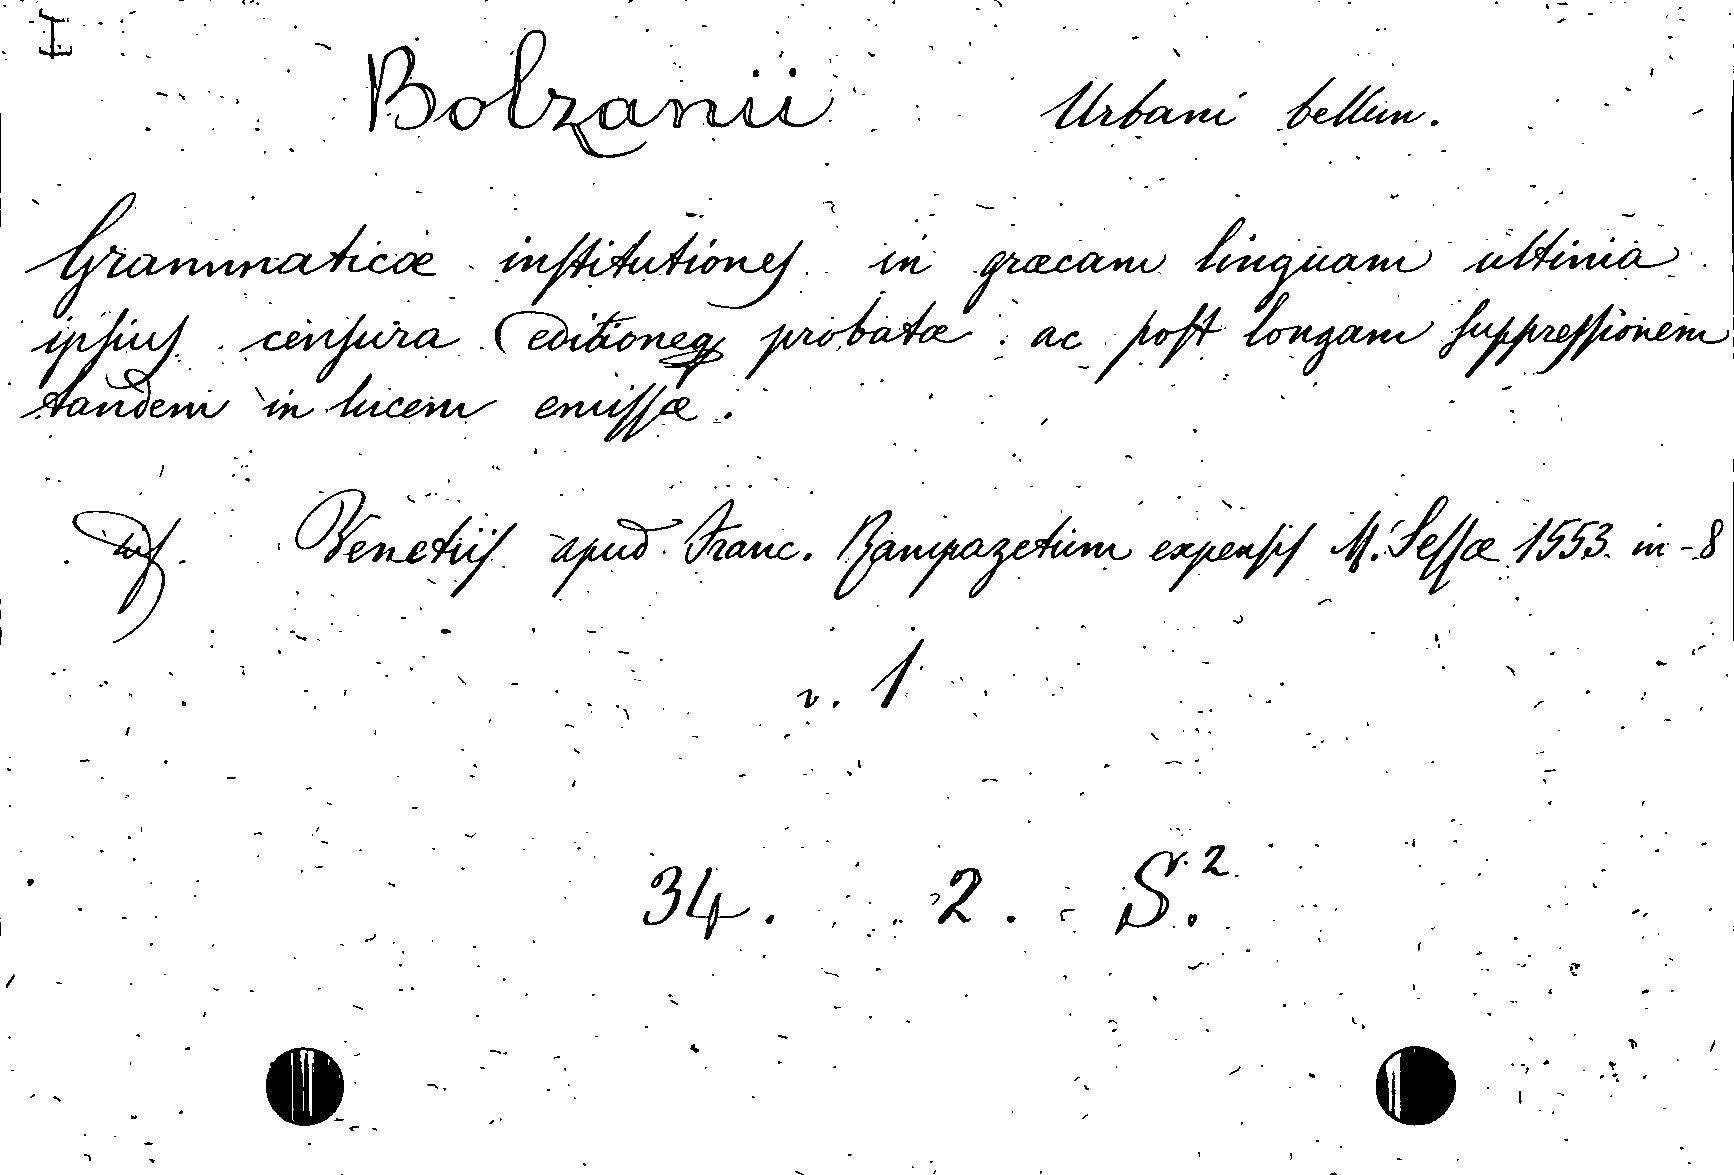 I
Bolzanii Urbani bellun.
Grammaticæ inſtitutioneſ in græcam linguam ultima
ipſiuſ cenſura editioneq probatæ ac poſt longam ſuppreſſionem
tandem in lucem emiſſæ.
Venetiiſ apud Franc. Zampazetum expenſiſ M. Seſſæ 1553. in-8
v. 1
34. 2. S.r.2